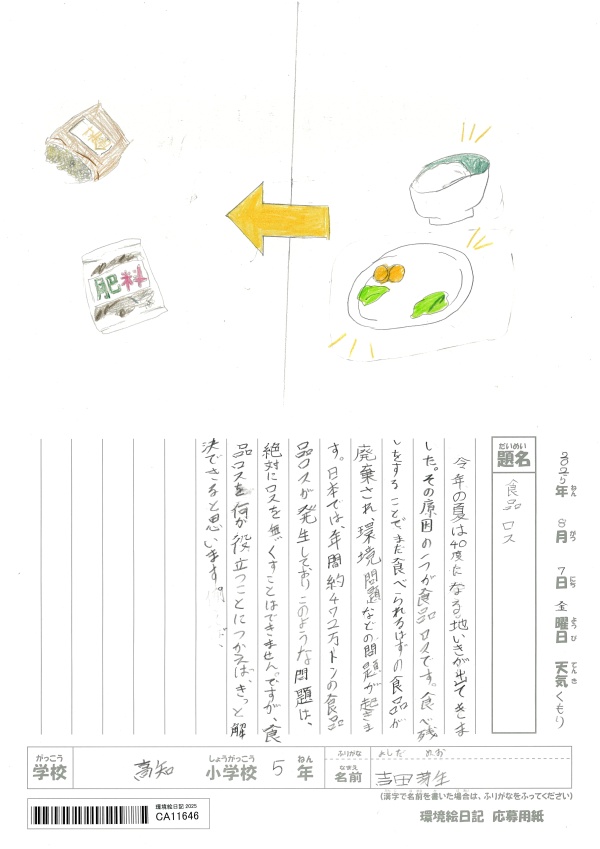 肥料
2025年 8月 7日 金曜日 天気 くもり
ねん がつ にち ようび てんき
だいめい
題名
食品ロス
今年の夏は40度になる地いきが出てきま
した。その原因の一つが食品ロスです。食べ残
しをすることでまだ食べられるはずの食品が
廃棄され、環境問題などの問題が起きま
す。日本では、年間約472万トンの食品
品ロスが発生しており、このような問題は、
絶対にロスを無くすことはできません。ですが、食
品ロスを何か役立つことにつかえば、きっと解
決できると思います。
がっこう しょうがっこう ねん
学校 高知 小学校 5年
ふりがな よしだ めお
なまえ
名前 吉田芽生
(漢字で名前を書いた場合は、ふりがなをふってください)
環境絵日記 2025
CA11646
環境絵日記 応募用紙